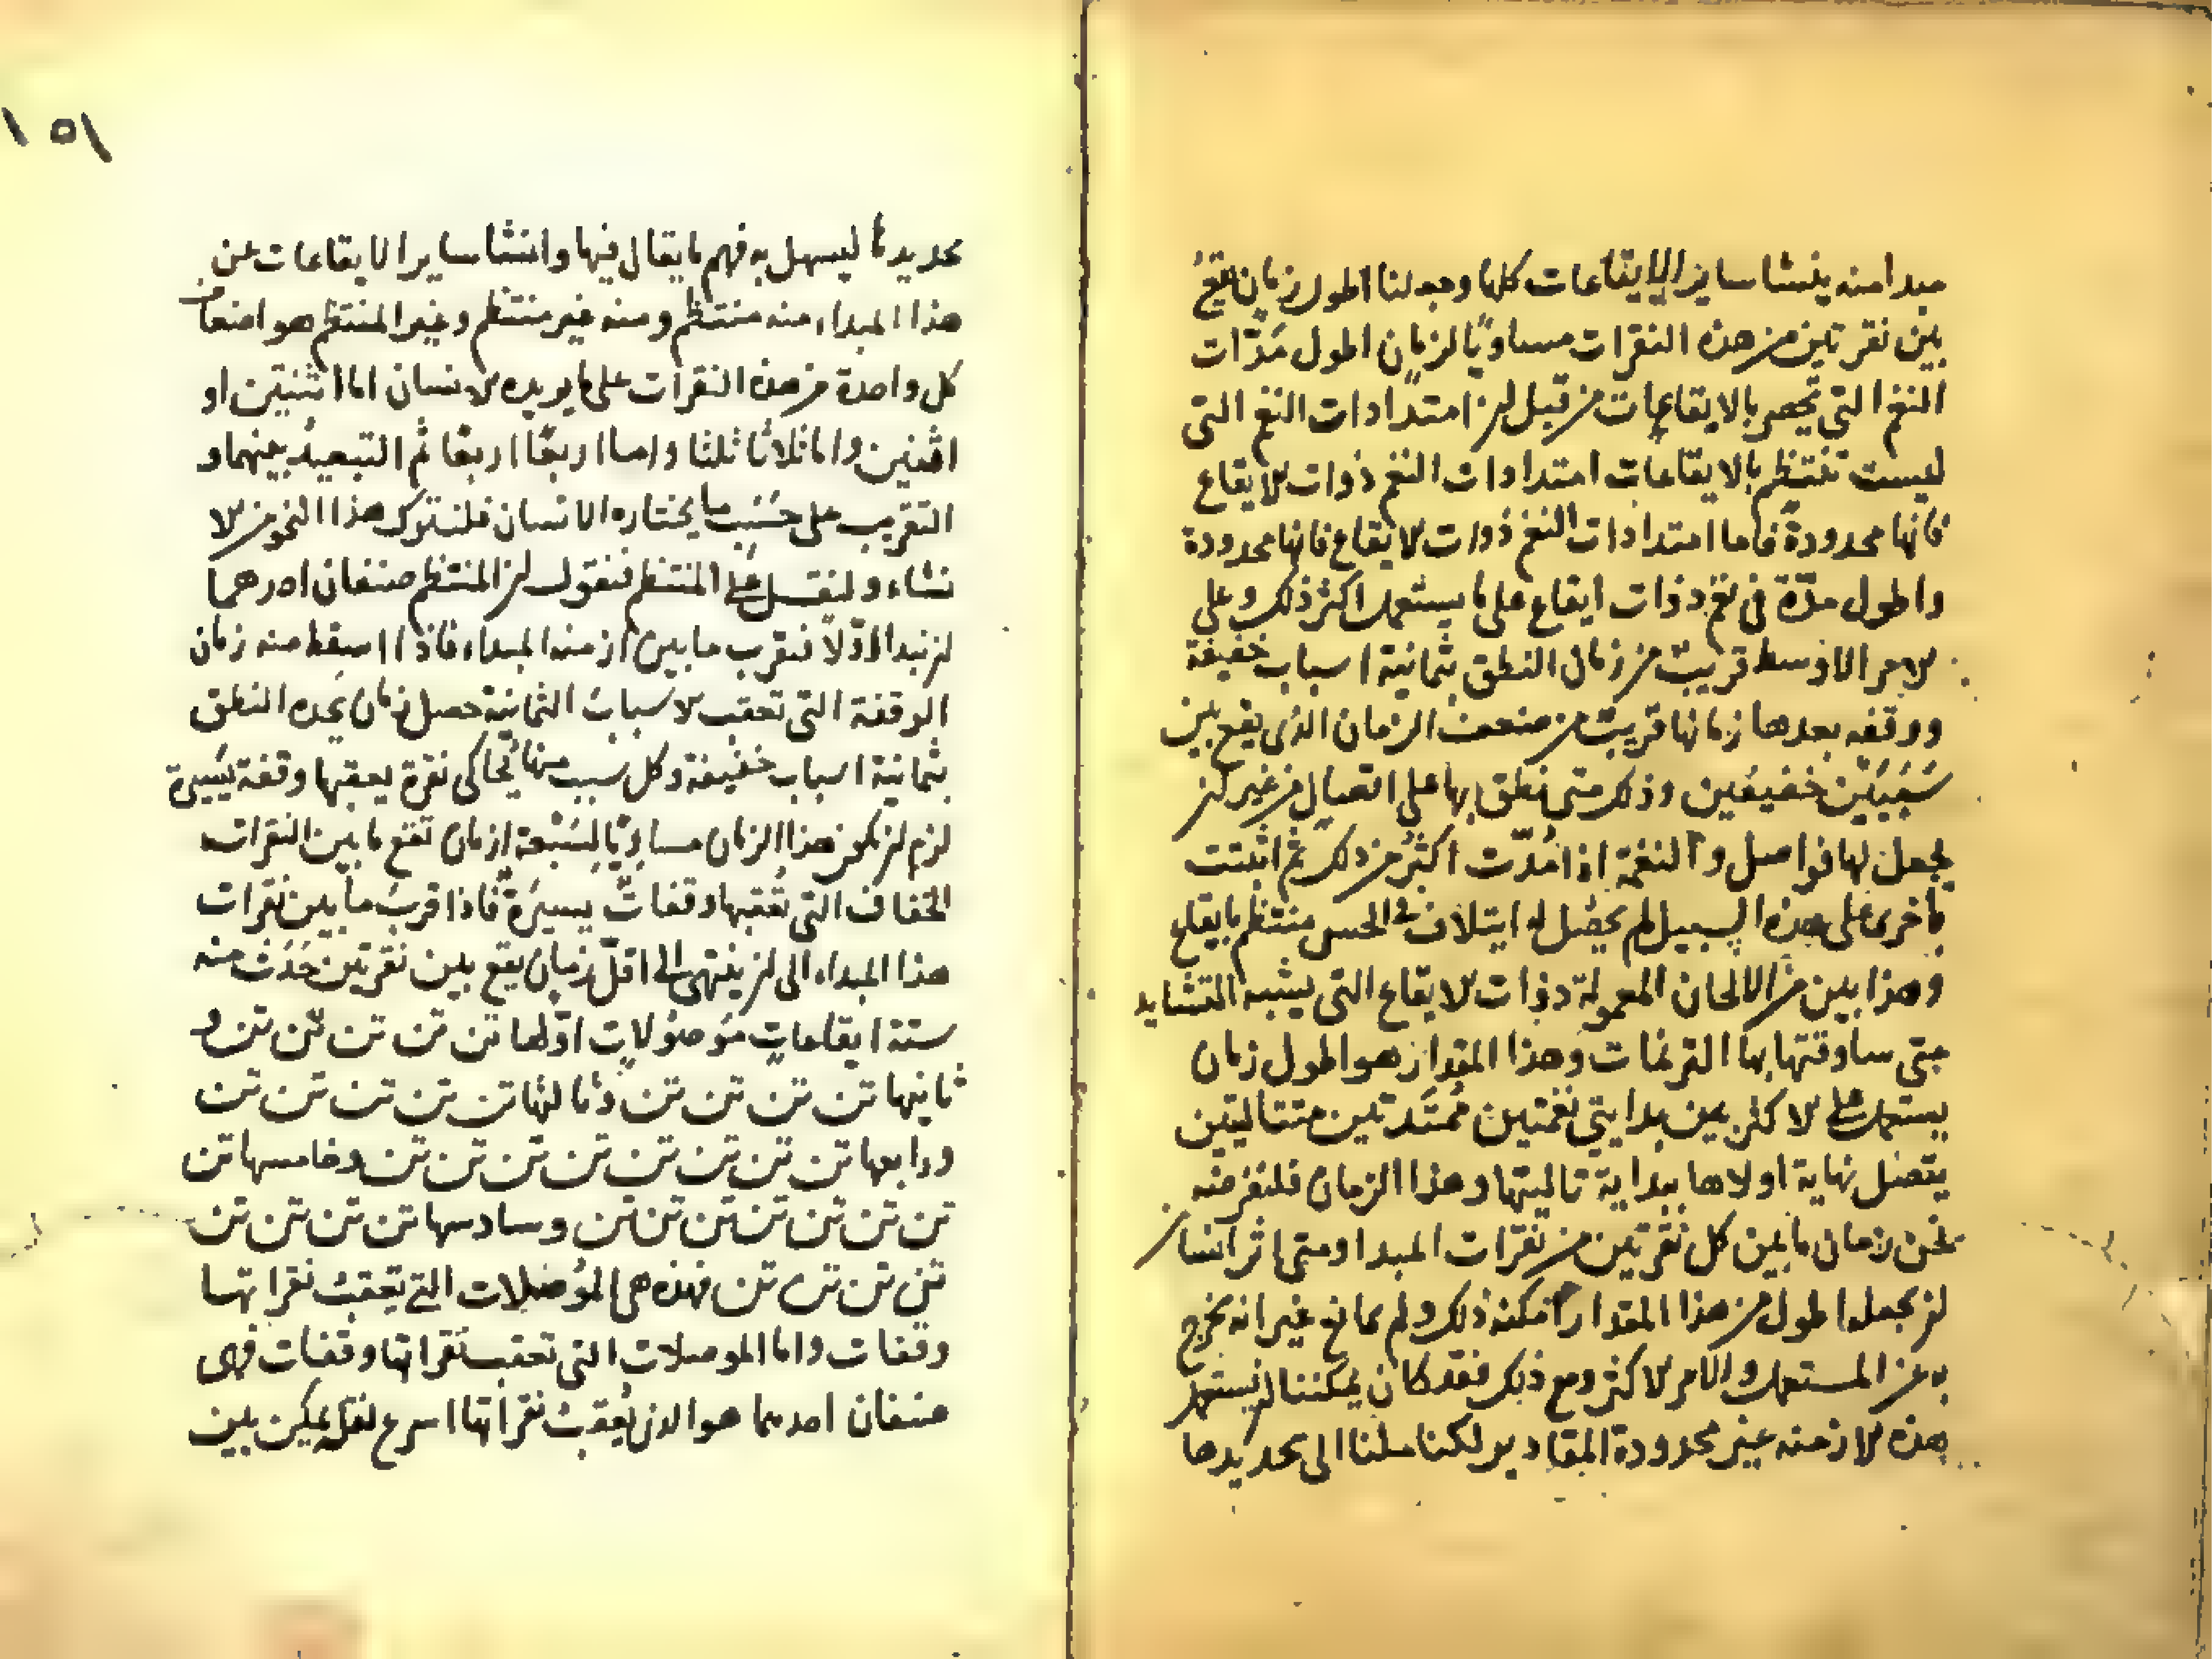 مبدا منه ينشا ساير الايقاعات كلها وجعلنا اطول زمان يقع
بين نقرتين من هذه النقرات مساويا لزمان اطول مدات
النغم التي تحصر بالايقاعات من قبل ان امتدادات النغم التي
ليست تنتظم بالايقاعات امتدادات النغم ذوات الايقاع
فانها محدودة فاما امتدادات النغم ذوات الايقاع فانها محدودة
واطول مدة في نغم ذوات ايقاع على ما يستعمل اكثر ذلك وعلى
الامر الاوسط قريب من زمان النطق بثمانية اسباب خفيفة
ووقفه بعدها زمانها قريب من ضعف الزمان الذي يقع بين
سببين خفيفين وذلك متى نطق بها على اتصال من غير ان
يجعل لها فواصل والنغمة اذا مدت اكثر من ذلك ثم اثبتت
باخرى على هذه السبيل لم يحصل له ايتلاف في الحس منتظم بايقاع
وهذا بين من الالحان المعمولة ذوات الايقاع التي يشبه التشايد
متى ساوقتها بها الترنمات وهذا المقدار هو اطول زمان
يستعمل على الاكثر بين بدايتي نغمتين ممتدتين متتاليتين
يتصل نهاية اولاها ببداية تاليتها وهذا الزمان فلنفرضه
نحن زمان ما بين كل نقرتين من نقرات المبدا ومتى اثر انسان
ان يجعلها اطول من هذا المقدار امكنه ذلك ولم يمانع غير انه يخرج
به عن المستعمل والامر الاكثر ومع ذلك فقد كان يمكننا ان نستعمل
هذه الازمنه غير محدودة المقادير لكنا ملنا الى تحديدها
١٥١
تحديدا ليسهل به فهم ما يقال فيها وانشا ساير الايقاعات عن
هذا المبداء منه منتظم ومنه غير منتظم وغير المنتظم هو اضعاف
كل واحدة من هذه النقرات على ما يريده الانسان اما اثنتين او
اثنين واما ثلاثا ثلثا واما اربعا اربعا ثم التبعيد بينهما و
التقريب على حسب ما يختاره الانسان فلنترك هذا النحو من الا
نشاء ولنقبل على المنتظم فنقول ان المنتظم صنفان احدهما
ان نبدا اولا فنقرب ما بين ازمنه المبداء فاذا اسقط منه زمان
الوقفة التي تعقب الاسباب الثمانية حصل زمان يحده النطق
بثمانية اسباب خفيفة وكل سبب منها يحاكى نقرة يعقبها وقفة يسيرة
لزم ان يكون هذا الزمان مساويا لسبعة ازمان تقع ما بين النقرات
الخفاف التي تعقبها وقفات يسيرة فاذا قرب ما بين نقرات
هذا المبداء الى ان ينتهى الى اقل زمان يقع بين نقرتين حدث منه
ستة ايقاعات موصولات اولها تن تن تن تن تن و
ثانيها تن تن تن تن وثالثها تن تن تن تن تن
ورابعها تن تن تن تن تن تن تن وخامسها تن
تن تن تن تن تن تن تن وسادسها تن تن تن تن
تن تن تن تن فهذه هي الموصلات التي تعقب نقراتها
وقفات واما الموصلات التي تعقب نقراتها وقفات فهى
صنفان احدهما هو الذي يعقب نقراتها اسرع نقله يمكن بين